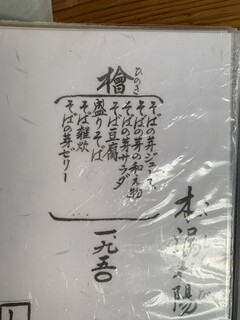 檜
ひのき
そばの芽ジュース
そばの芽の和え物
そばの芽サラダ
そば豆腐
盛りそば
そば雑炊
そばの芽ゼリー
一九五〇